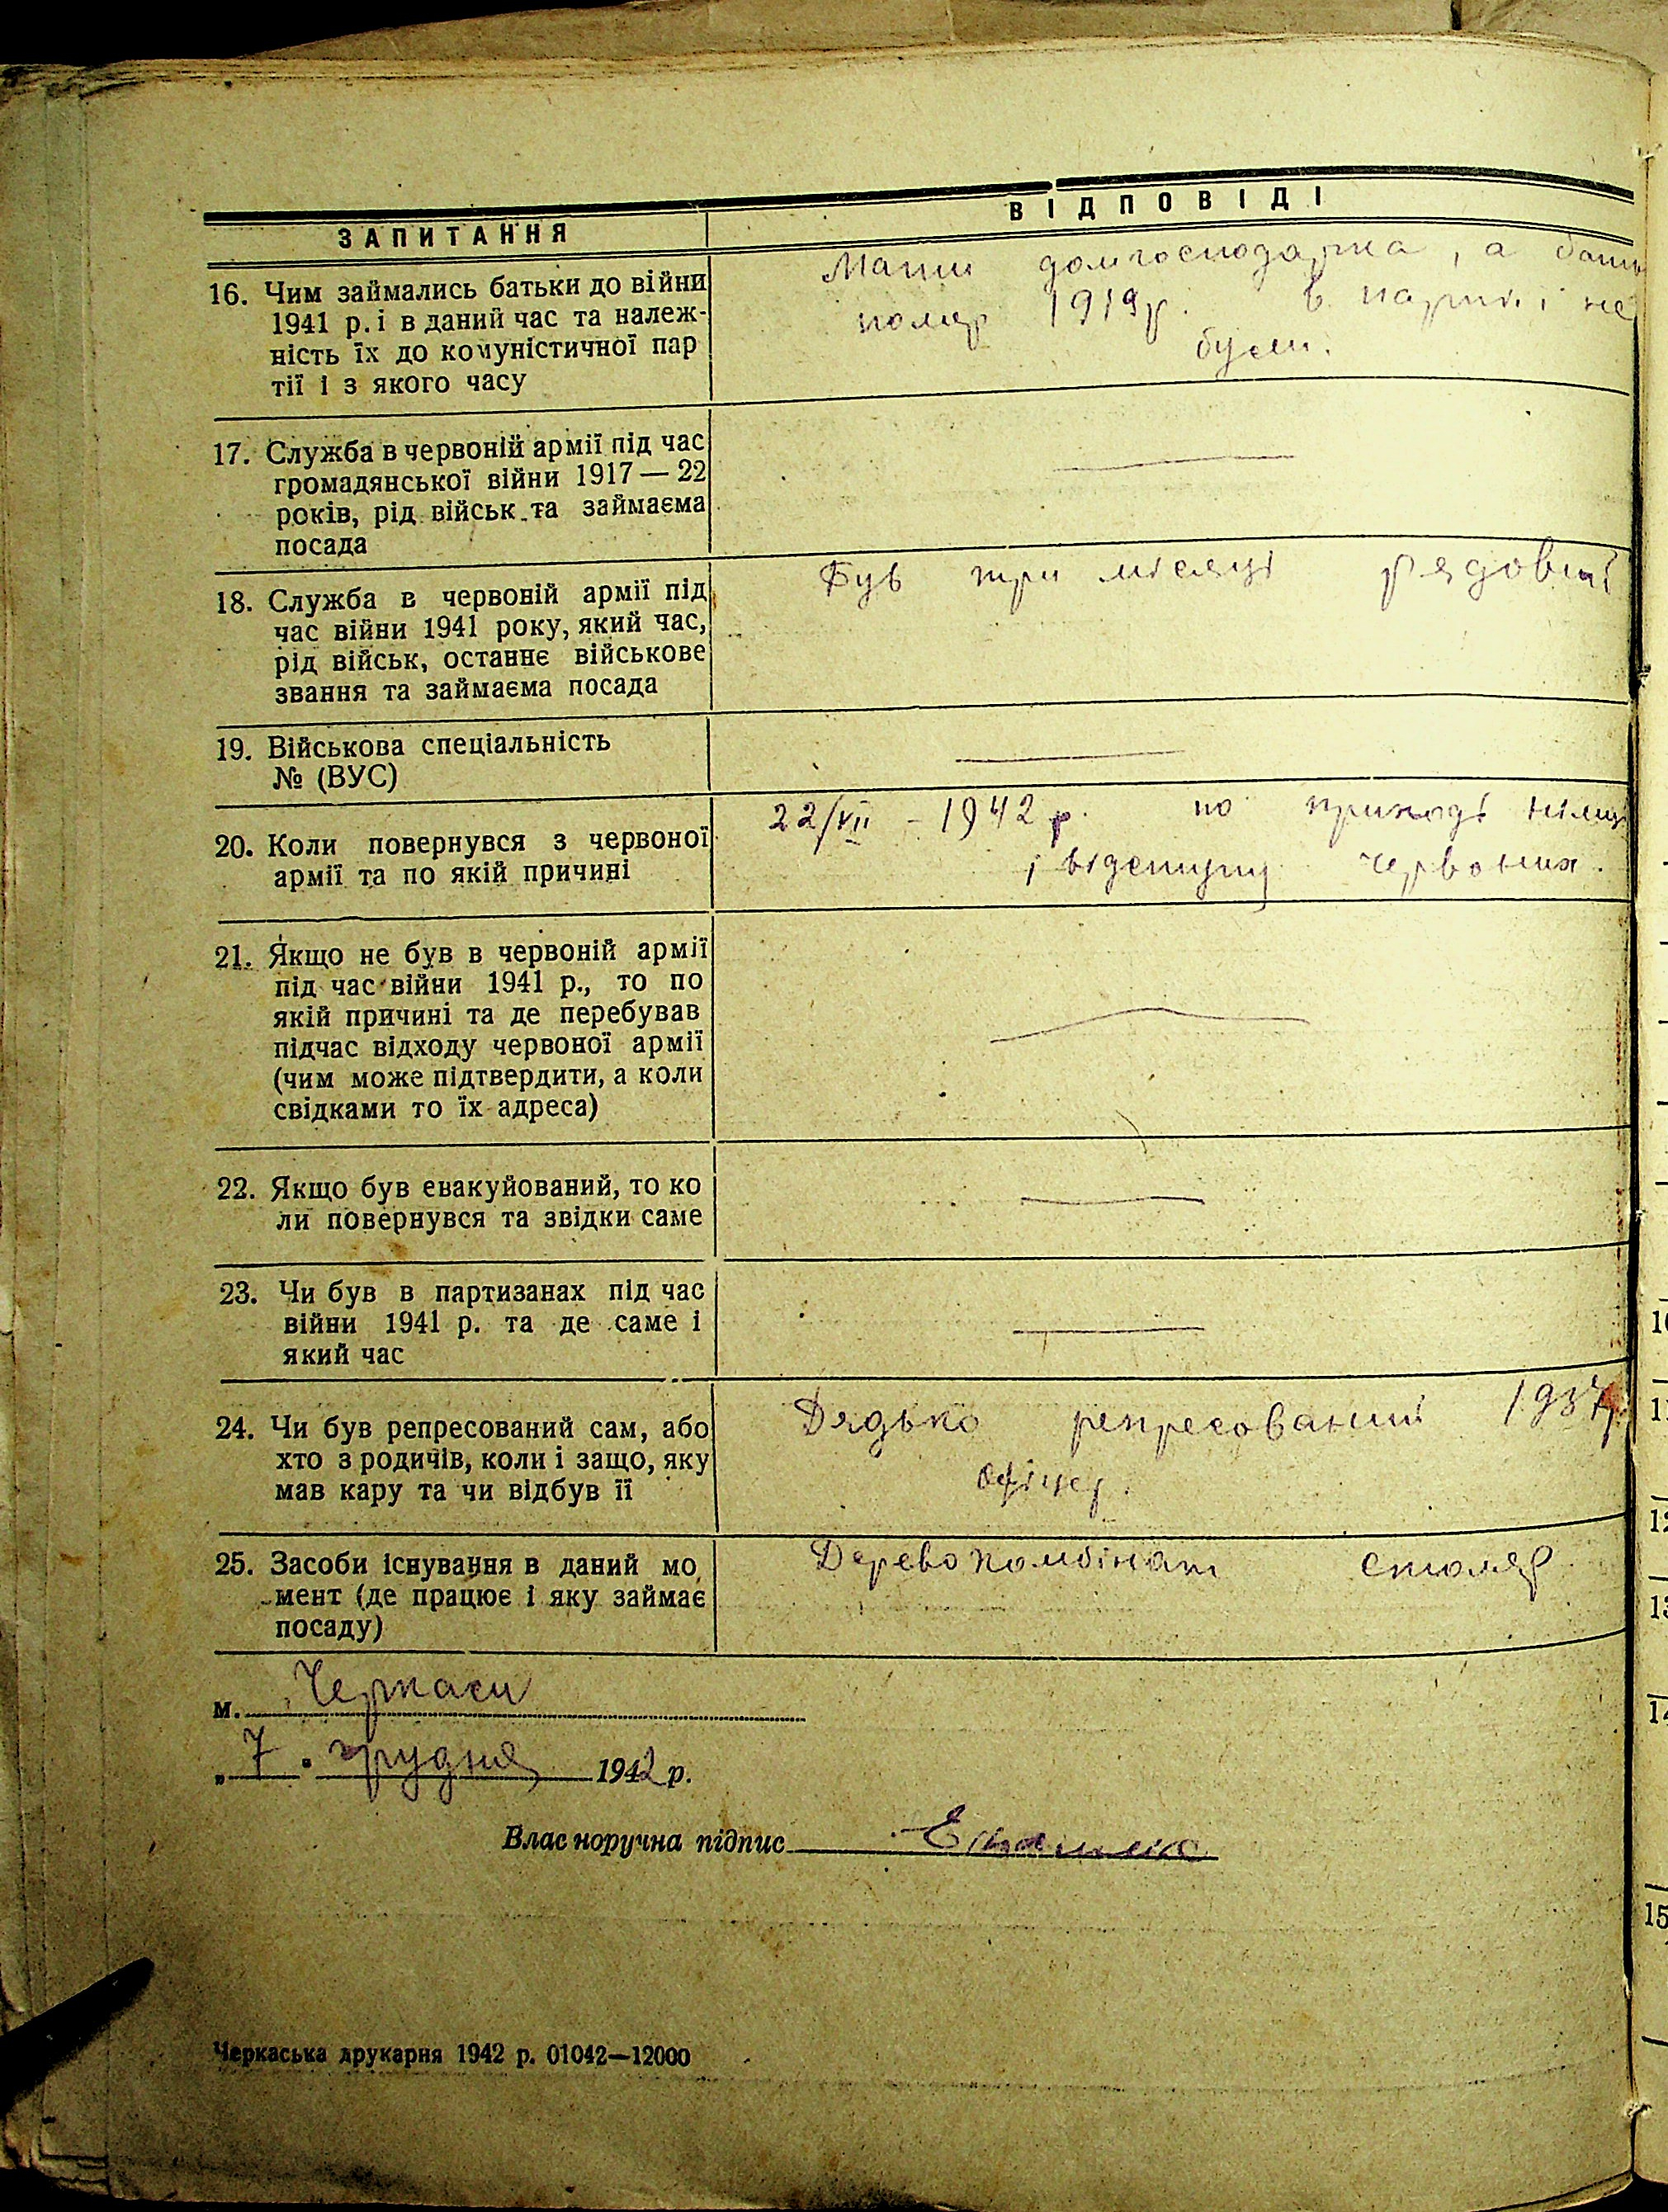 ЗАПИТАННЯ
ВІДПОВІДІ
16. Чим займались батьки до війни
1941 р. і в даний час та належ-
ність їх до комуністичної пар
тії і з якого часу
Мати домгосподарка, а бать
помер 1919 р. в партії і не
були.
17. Служба в червоній армії під час
громадянської війни 1917—22
років, рід військ та займаєма
посада
18. Служба в червоній армії під
час війни 1941 року, який час,
рід військ, останнє військове
звання та займаєма посада
Був три місяці рядовий
19. Військова спеціальність
№ (ВУС)
20. Коли повернувся з червоної
армії та по якій причині
22/VII - 1942 р. по приході німц
і відступу червоних.
21. Якщо не був в червоній армії
під час війни 1941 р., то по
якій причині та де перебував
підчас відходу червоної армії
(чим може підтвердити, а коли
свідками то їх адреса)
22. Якщо був евакуйований, то ко
ли повернувся та звідки саме
23. Чи був в партизанах під час
війни 1941 р. та де саме і
який час
24. Чи був репресований сам, або
хто з родичів, коли і защо, яку
мав кару та чи відбув її
Дядько репресований 1937р.
офіцер.
25. Засоби існування в даний мо
мент (де працює і яку займає
посаду)
Деревокомбінат столяр
м. Черкаси
„7" грудня 1942 р.
Власноручна підпис
Черкаська друкарня 1942 р. 01042—12000
10
11
12
13
14
15